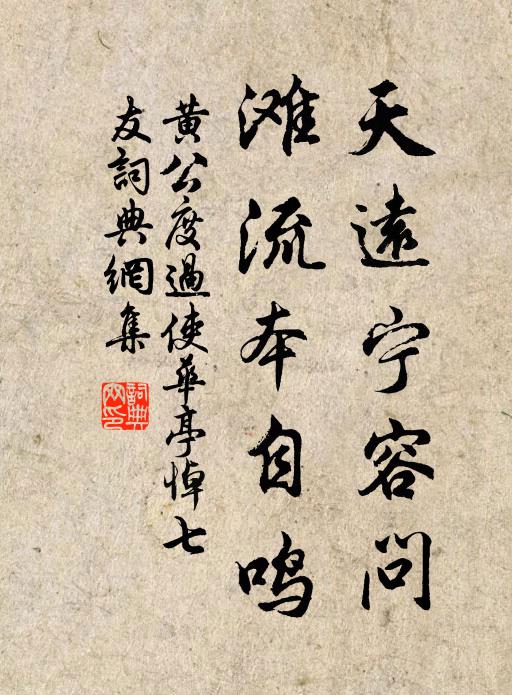 天遠宁容问
滩流本自鸣
黄公度過使華亭悼七
友詞典網集
詞典
网印